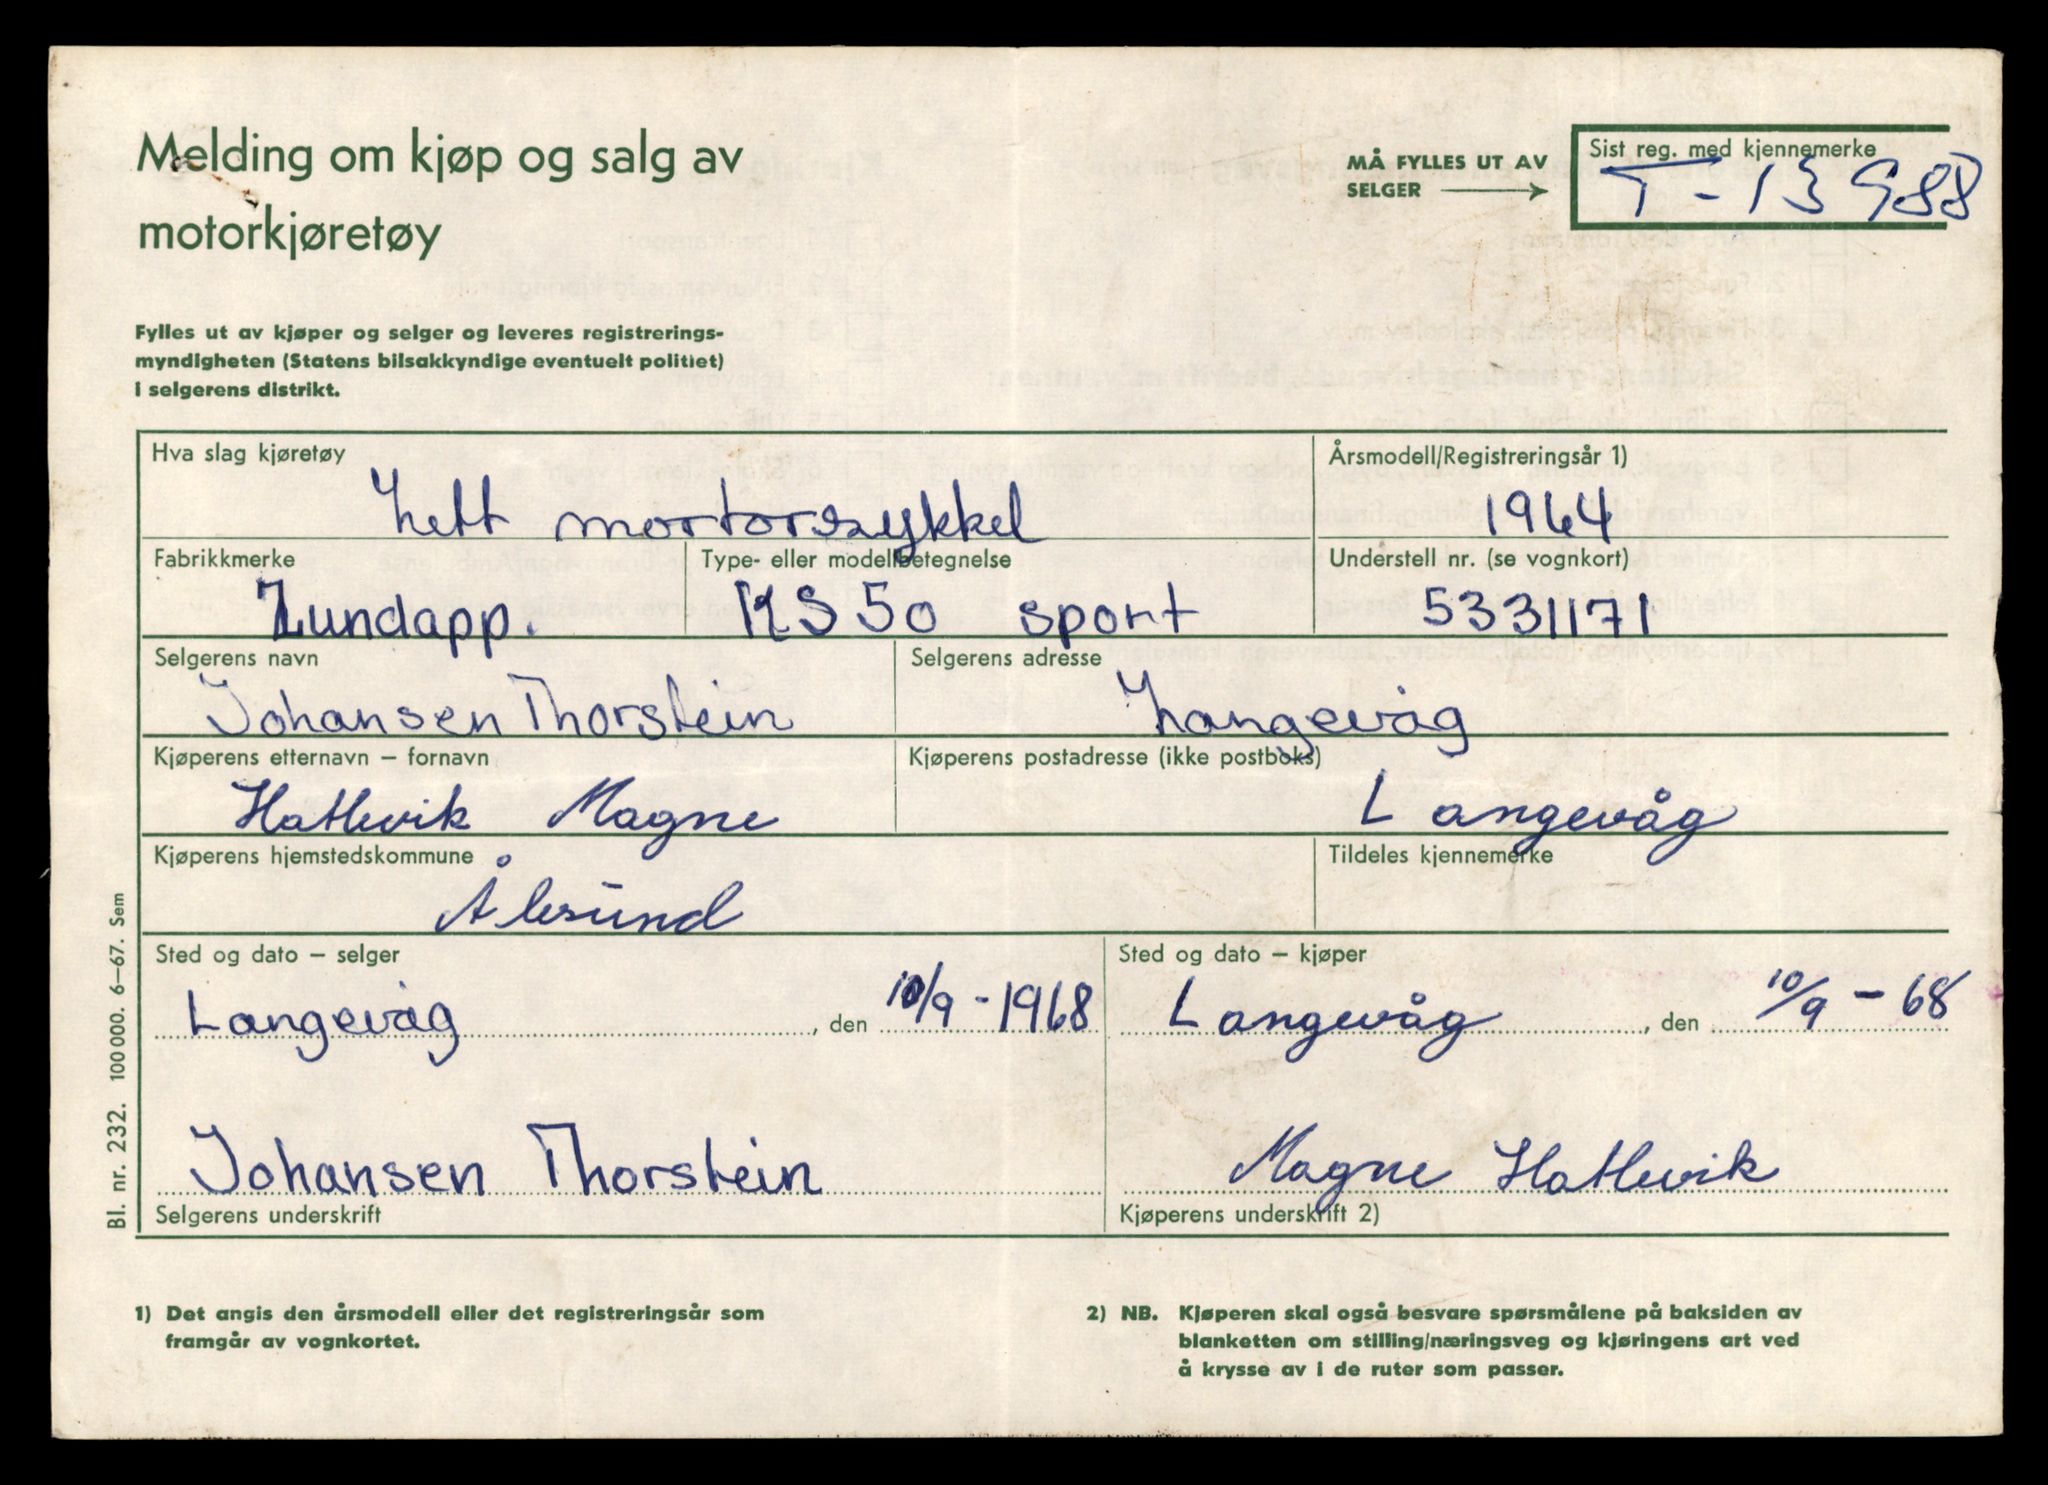 Melding om kjøp og salg av
motorkjøretøy
MÅ FYLLES UT AV
SELGER
Sist reg. med kjennemerke
T-13988
Fylles ut av kjøper og selger og leveres registrerings-
myndigheten (Statens bilsakkyndige eventuelt politiet)
i selgerens distrikt.
Hva slag kjøretøy
Årsmodell/Registreringsår 1)
Lett mortorsykkel
1964
Fabrikkmerke
Type- eller modellbetegnelse
Understell nr. (se vognkort)
Zundapp.
KS 50 sport
5331171
Selgerens navn
Selgerens adresse
Johansen Thorstein
Langevåg
Kjøperens etternavn – fornavn
Kjøperens postadresse (ikke postboks)
Hatlevik Magne
Langevåg
Kjøperens hjemstedskommune
Tildeles kjennemerke
Ålesund
Sted og dato – selger
Sted og dato – kjøper
Langevåg, den 10/9-1968
Langevåg, den 10/9 - 68
Johansen Thorstein
Magne Hatlevik
Selgerens underskrift
Kjøperens underskrift 2)
Bl. nr. 232. 100 000. 6–67. Sem
1) Det angis den årsmodell eller det registreringsår som
framgår av vognkortet.
2) NB. Kjøperen skal også besvare spørsmålene på baksiden av
blanketten om stilling/næringsveg og kjøringens art ved
å krysse av i de ruter som passer.